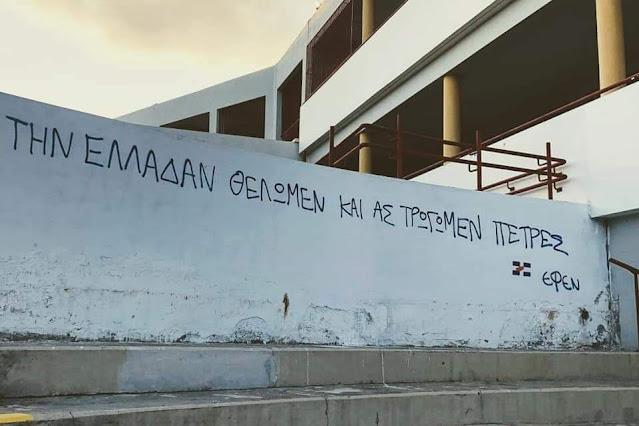 ΤΗΝ ΕΛΛΑΔΑΝ ΘΕΛΩΜΕΝ ΚΑΙ ΑΣ ΤΡΩΓΩΜΕΝ ΠΕΤΡΕΣ
ΕΦΕΝ